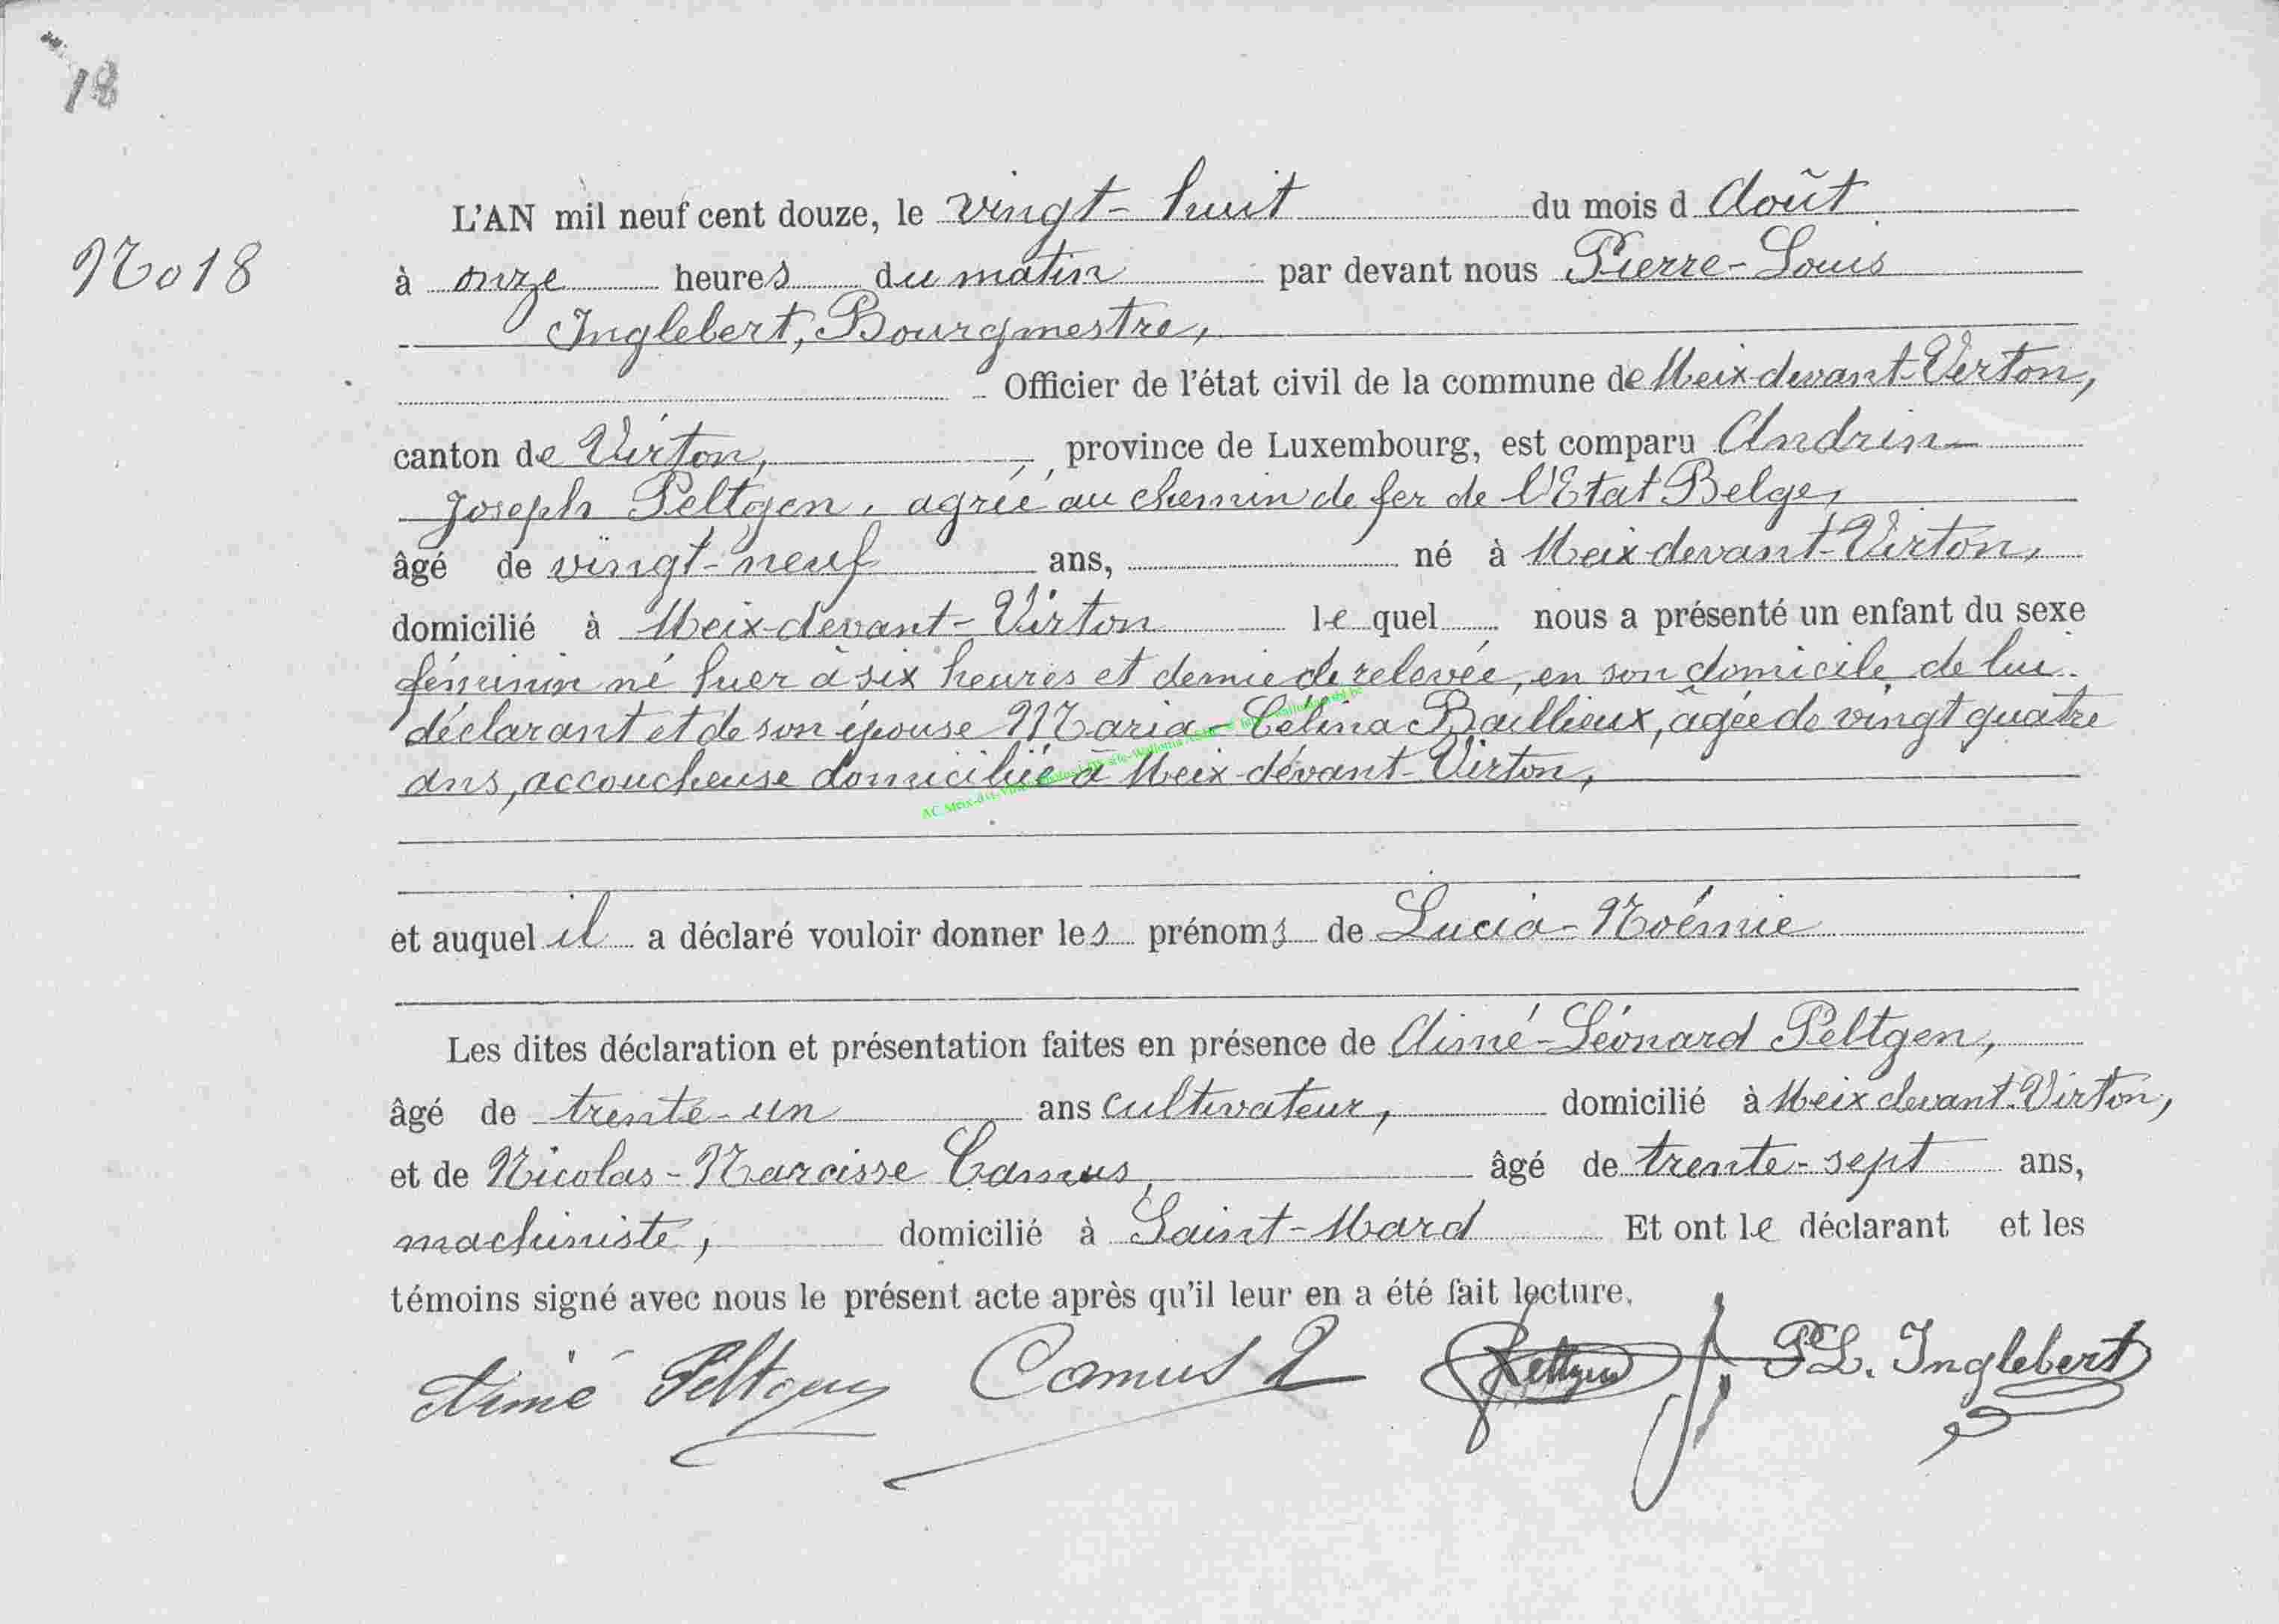 18
No 18
L'AN mil neuf cent douze, le vingt-huit du mois d'Août
à onze heures du matin par devant nous Pierre-Louis
Inglebert, Bourgmestre,
Officier de l'état civil de la commune de Meix-devant-Virton,
canton de Virton, province de Luxembourg, est comparu Andrin-
Joseph Peltgen, agréé au chemin de fer de l'Etat Belge,
âgé de vingt-neuf ans, né à Meix-devant-Virton,
domicilié à Meix-devant-Virton le quel nous a présenté un enfant du sexe
féminin né hier à six heures et demie de relevée, en son domicile, de lui
déclarant et de son épouse Maria-Célina Baillieux, âgée de vingt quatre
ans, accoucheuse domiciliée à Meix-devant-Virton,
et auquel il a déclaré vouloir donner les prénoms de Lucia-Noémie
Les dites déclaration et présentation faites en présence de Aimé-Léonard Peltgen,
âgé de trente-un ans cultivateur, domicilié à Meix-devant-Virton,
et de Nicolas-Narcisse Camus, âgé de trente-sept ans,
machiniste, domicilié à Saint-Mard Et ont le déclarant et les
témoins signé avec nous le présent acte après qu'il leur en a été fait lecture.
Aimé Peltgen Camus Peltgen PL. Inglebert